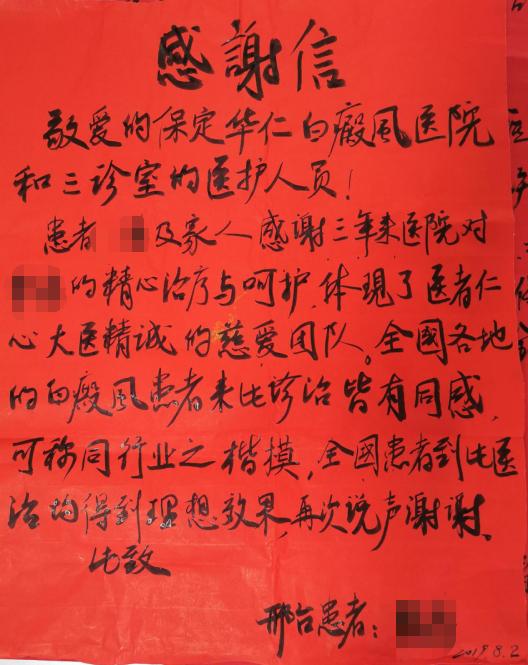 感謝信
敬爱的保定华仁白癜風医院
和三诊室的医护人员!
患者 及家人感謝三年来医院对
的精心治疗与呵护,体现了医者仁
心大医精诚的慈爱团队。全國各地
的白癜風患者来此诊治皆有同感,
可称同行业之楷摸,全國患者到此医
治均得到理想效果,再次说声谢谢、
此致
邢台患者:
2019.8.2